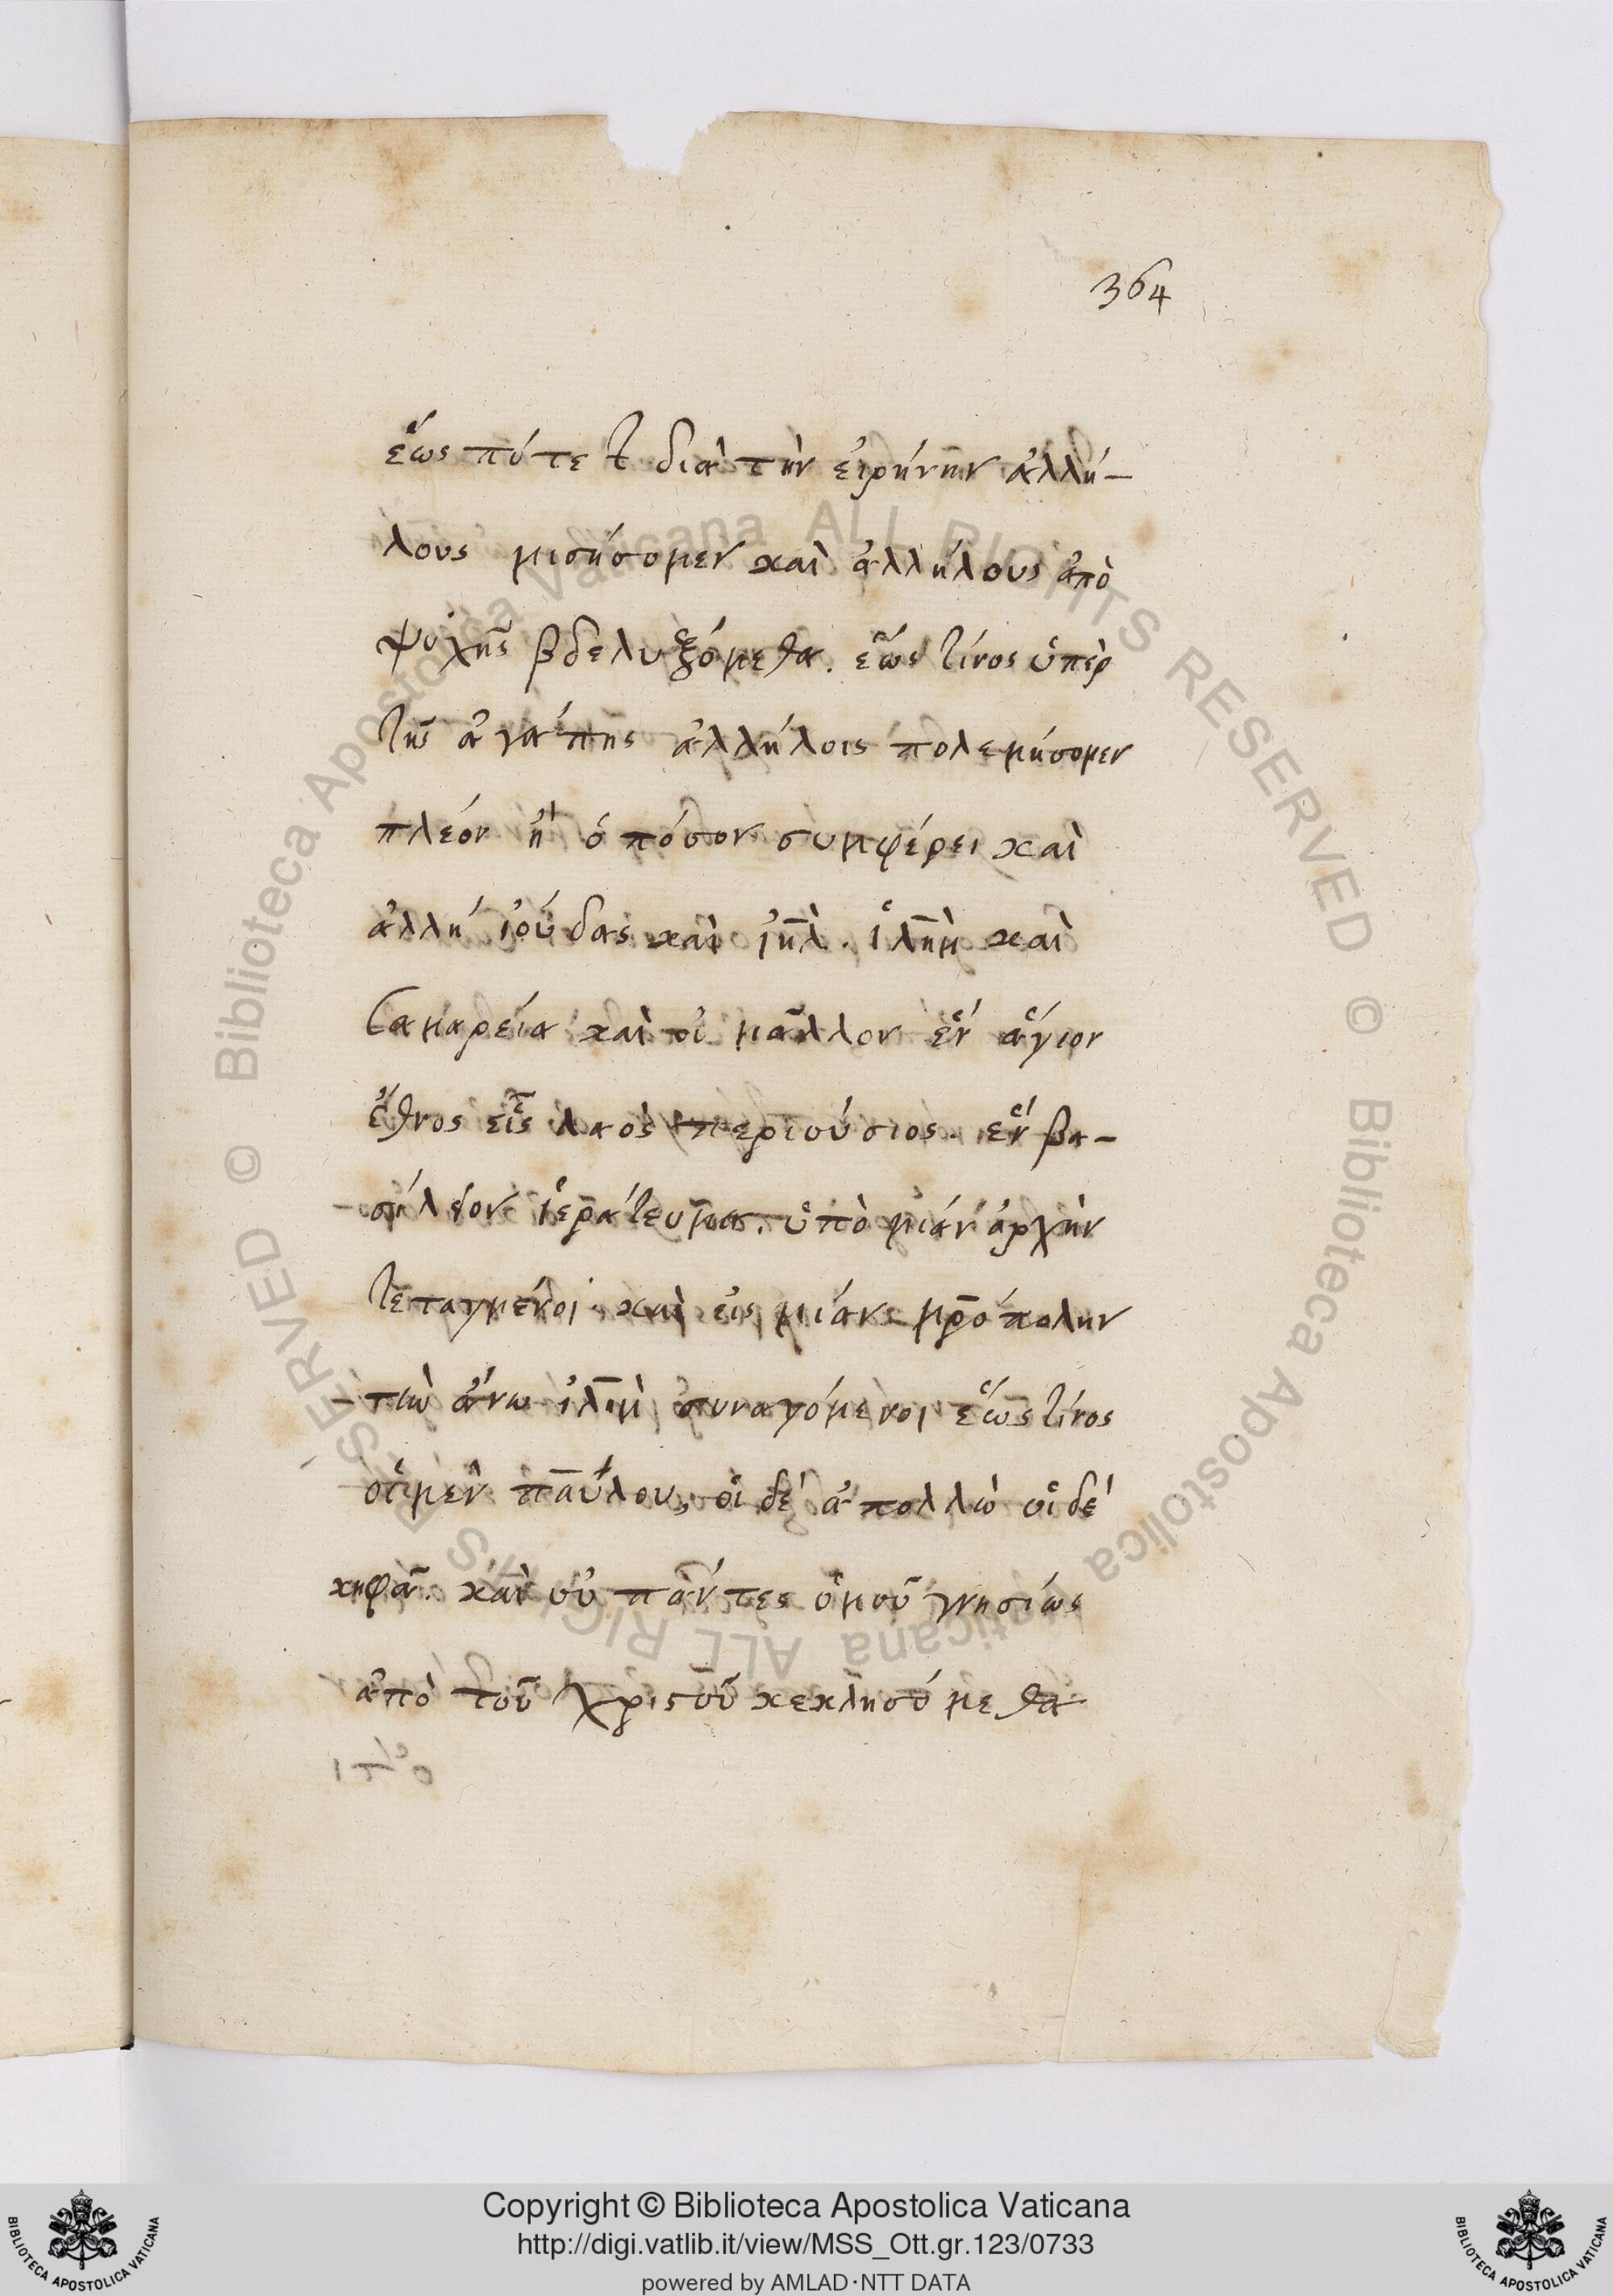 364
ἕως πότε ϯ διὰ τὴν ἐιρήνην ἀλλή-
λους μισήσομεν καὶ ἀλλήλους ἀπὸ
ψυχῆς βδελυξόμεθα. ἕως τίνος ὑπὲρ
τῆς ἀγάπης ἀλλήλοις πολεμήσομεν
πλέον ἢ ὁπόσον συμφέρει καὶ
ἀλλή ἰούδας καὶ ἰηλ̄. ἱλημ̄ καὶ
Σαμαρεία καὶ οἱ μᾶλλον ἓν ἅγιον
ἔθνος εἷς λαὸς περιούσιος. ἓν βα-
σίλειον ἱεράτευμα. ὑπὸ μίαν ἀρχὴν
τεταγμένοι. καὶ εἰς μίαν μρ̄όπολην
τὴν ἄνω ἰλημ̄ συναγόμενοι ἕως τίνος
οἱ μὲν παύλου, οἱ δὲ ἀπολλὼ οἱ δὲ
κηφᾶ. καὶ οὐ πάντες ὁμοῦ γνησίως
ἀπὸ τοῦ χριστοῦ κεκλησόμεθα
Copyright © Biblioteca Apostolica Vaticana
http://digi.vatlib.it/view/MSS_Ott.gr.123/0733
powered by AMLAD·NTT DATA
BIBLIOTECA APOSTOLICA VATICANA
BIBLIOTECA APOSTOLICA VATICANA
© Biblioteca Apostolica Vaticana ALL RIGHTS RESERVED
© Biblioteca Apostolica Vaticana ALL RIGHTS RESERVED